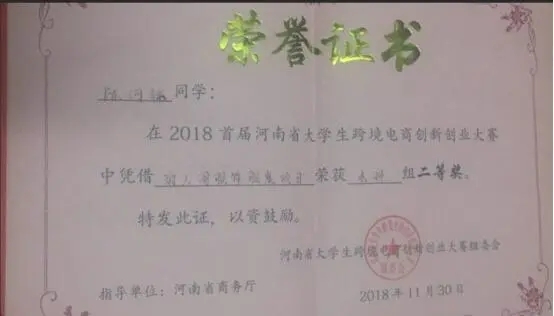 荣誉证书
同学：
在2018首届河南省大学生跨境电商创新创业大赛
中凭借 荣获 本科 组二等奖。
特发此证，以资鼓励。
河南省大学生跨境电商创新创业大赛组委会
指导单位：河南省商务厅 2018年11月30日